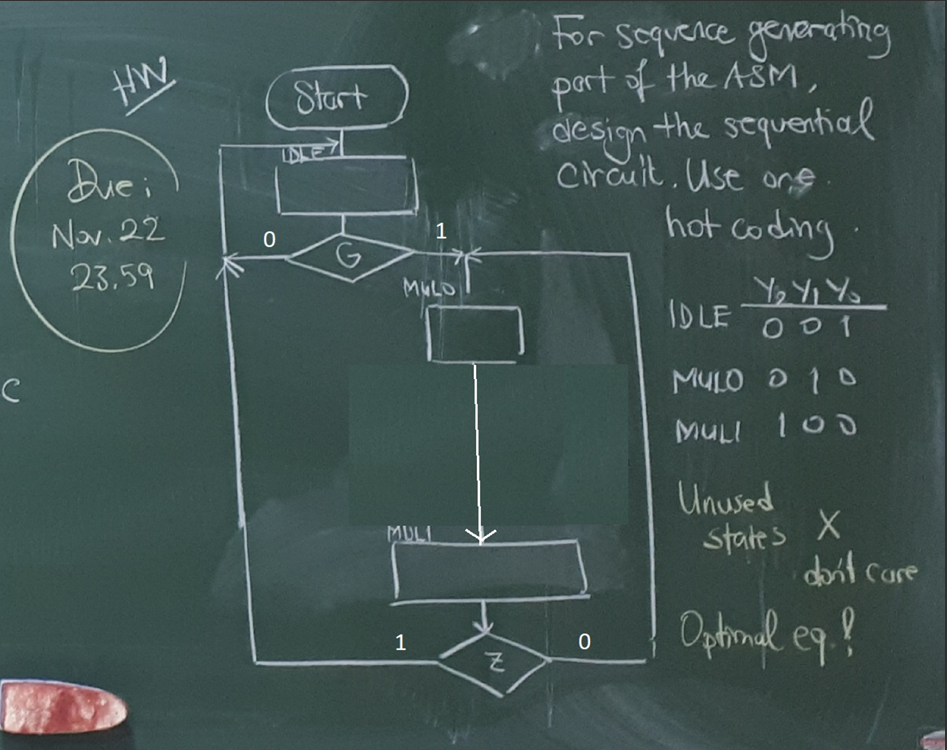 HW
Due:
Nov. 22
23.59
C
Start
IDLE
0
G
1
MUL0
MUL1
1
Z
0
For sequence generating
part of the ASM,
design the sequential
circuit. Use one
hot coding.
Y2 Y1 Y0
IDLE 0 0 1
MUL0 0 1 0
MUL1 1 0 0
Unused
states X
don't care
Optimal eq.!